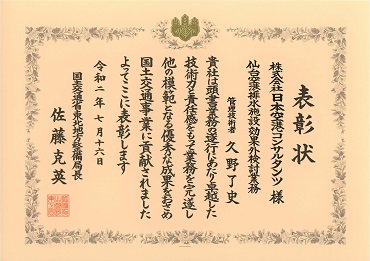 表彰状
株式会社日本空港コンサルタンツ 様
仙台空港排水施設効果外検討業務
管理技術者 久野了史
貴社は頭書業務の遂行にあたり卓越した
技術力と責任感をもって業務を完遂し
他の模範となる優秀な成果をおさめ
国土交通事業に貢献されました
よってここに表彰します
令和二年七月十六日
国土交通省東北地方整備局長
佐藤克英